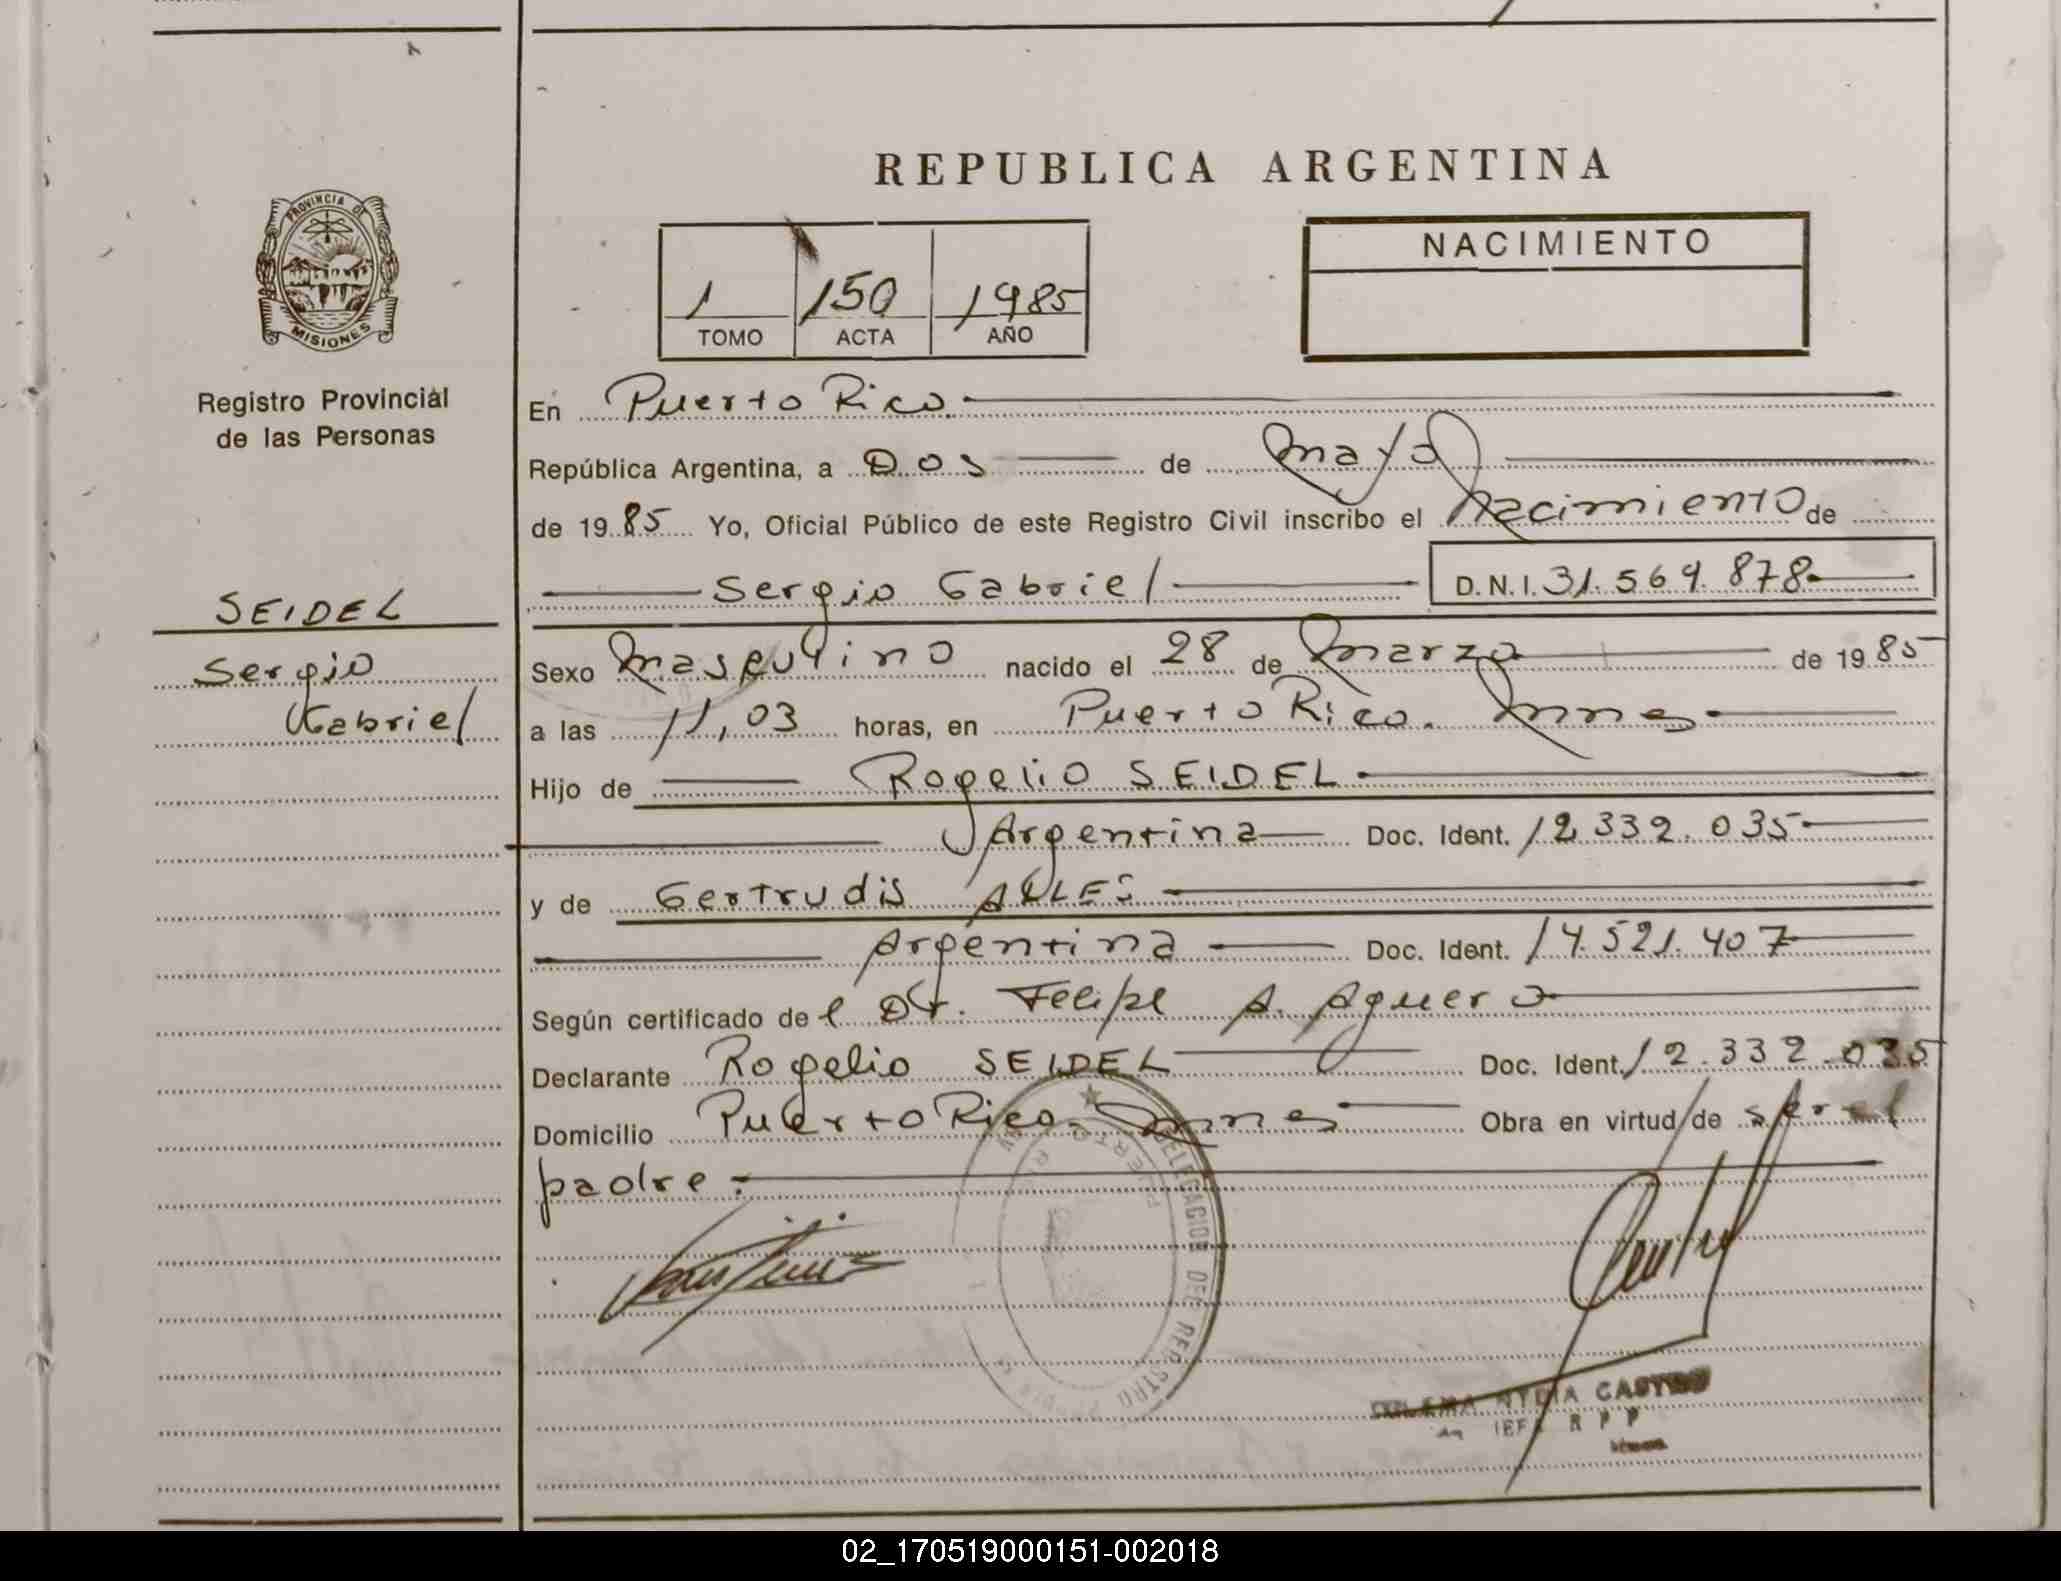 REPUBLICA ARGENTINA
PROVINCIA DE
MISIONES
Registro Provincial
de las Personas
1 150 1985
TOMO ACTA AÑO
NACIMIENTO
SEIDEL
Sergio
Gabriel
En Puerto Rico.
República Argentina, a Dos de mayo
de 1985 Yo, Oficial Público de este Registro Civil inscribo el Nacimiento de
Sergio Gabriel D.N.I. 31.569.878
Sexo masculino nacido el 28 de marzo de 1985
a las 11,03 horas, en Puerto Rico. Mnes
Hijo de Rogelio SEIDEL
Argentina Doc. Ident. 12.332.035
y de Gertrudis ALLES
Argentina Doc. Ident. 14.521.407
Según certificado del Dr. Felipe A. Aguero
Declarante Rogelio SEIDEL Doc. Ident. 12.332.035
Domicilio Puerto Rico. Mnes Obra en virtud de ser el
padre.
DELEGACION DEL REGISTRO
PUERTO
NYDIA CASTRO
R P P
02_170519000151-002018